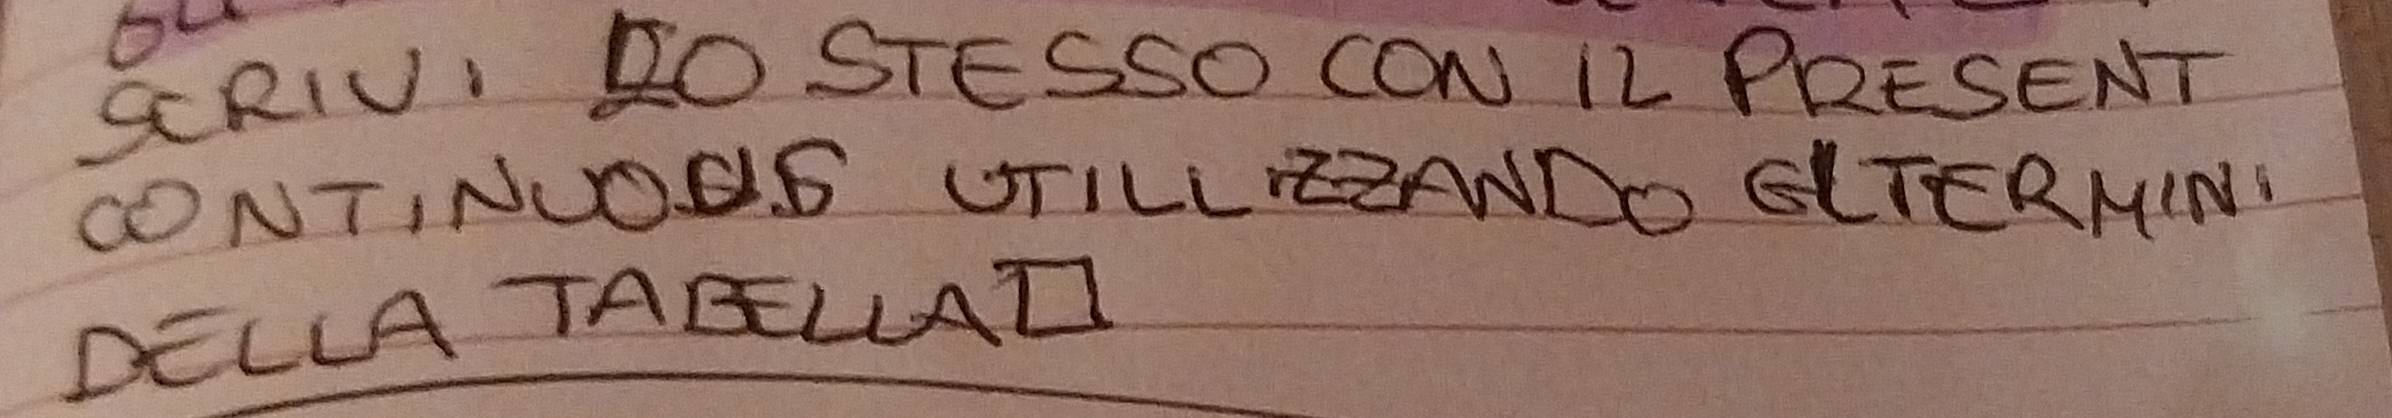 SCRIVI LO STESSO CON IL PRESENT
CONTINUOUS UTILLIZZANDO I TERMINI
DELLA TABELLA